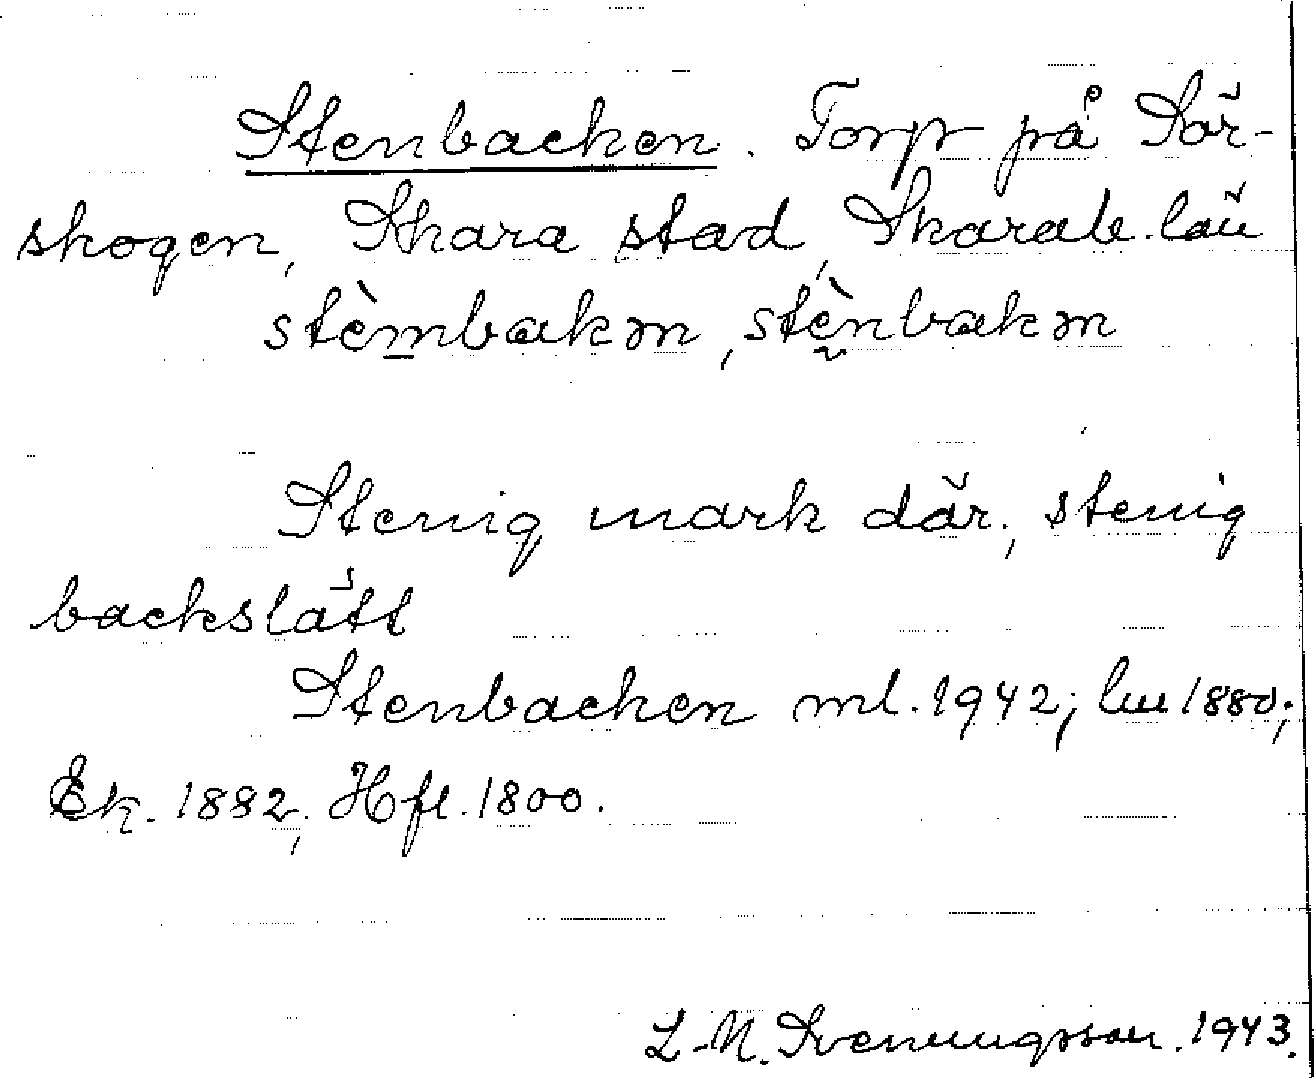 Stenbacken. Torp på Sör-
skogen, Skara stad, Skarab. län
stèmbakən, stènbakən
Stenig mark där; stenig
backslätt
Stenbacken ml. 1942; lm 1880;
Ek. 1882; Hfl. 1800.
L-N. Sveningsson. 1943.